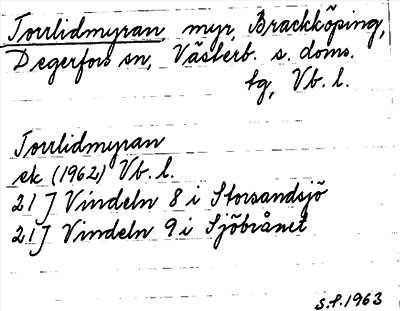 Torrlidmyran myr, Brackköping,
Degerfors sn, Västerb. s. doms.
tg, Vb. l.
Torrlidmyran
ek (1962) Vb. l.
21J Vindeln 8 i Storsandsjö
21J Vindeln 9 i Sjöbrånet
S.P. 1963